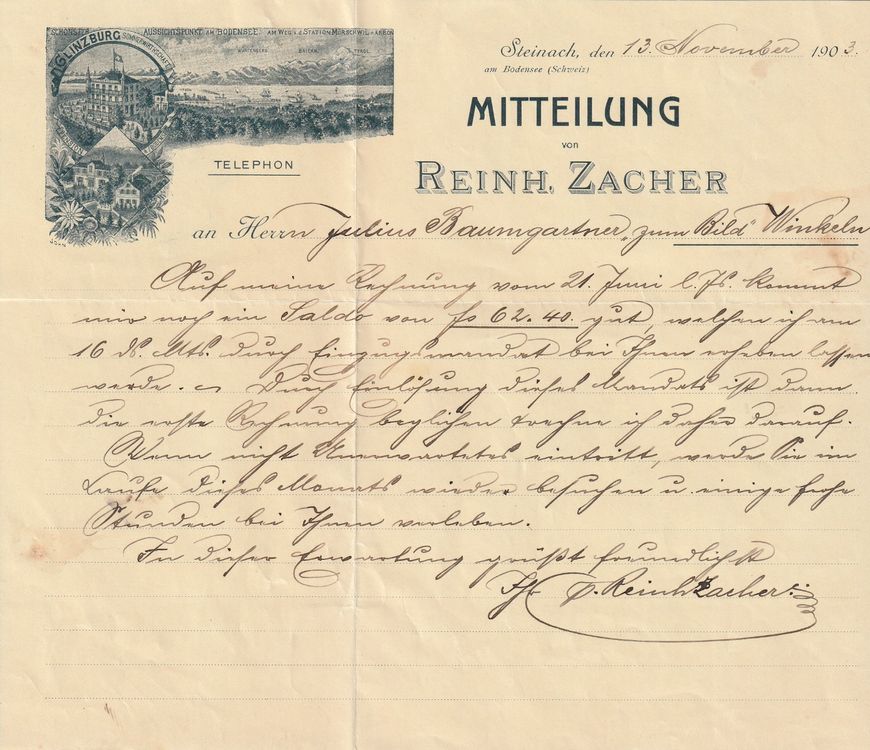 SCHÖNSTER AUSSICHTSPUNKT AM BODENSEE AM WEG v. d STATION MÖRSCHWIL n. ARBON
GLINZBURG SOMMERWIRTSCHAFT
WÜRTEMBERG BAIERN TYROL
PENSION
TELEPHON
Steinach, den 13. November 1903.
am Bodensee (Schweiz)
MITTEILUNG
von
REINH. ZACHER
an Herrn Julius Baumgartner „zum Bild" Winkeln
Auf meine Rechnung vom 21. Juni l. Js. kommt
mir noch ein Saldo von fs 62.40. gut, welchen ich am
16 ds. Mts. durch Einzugsmandat bei Ihnen erheben lassen
werde. Durch Einlösung dieses Mandats ist dann
die erste Rechnung beglichen & rechne ich daher darauf.
Wenn nicht Unerwartetes eintritt, werde Sie im
Laufe dieses Monats wieder besuchen u. einige frohe
Stunden bei Ihnen verleben.
In dieser Erwartung grüßt freundlichst
Ihr Reinh Zacher